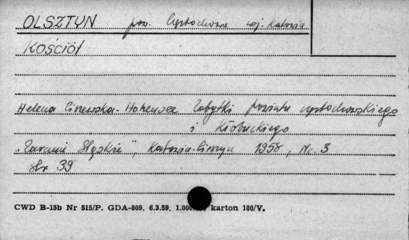 OLSZTYN pow. Częstochowa woj. Katowice
KOŚCIÓŁ
Helena Hohensee Zabytki powiatu częstochowskiego
i Kłobuckiego
"Zaranie Śląskie", 1958, Nr. 3
str 39
CWD B-15b Nr 515/P. GDA-809. 6.3.59. karton 180/V.